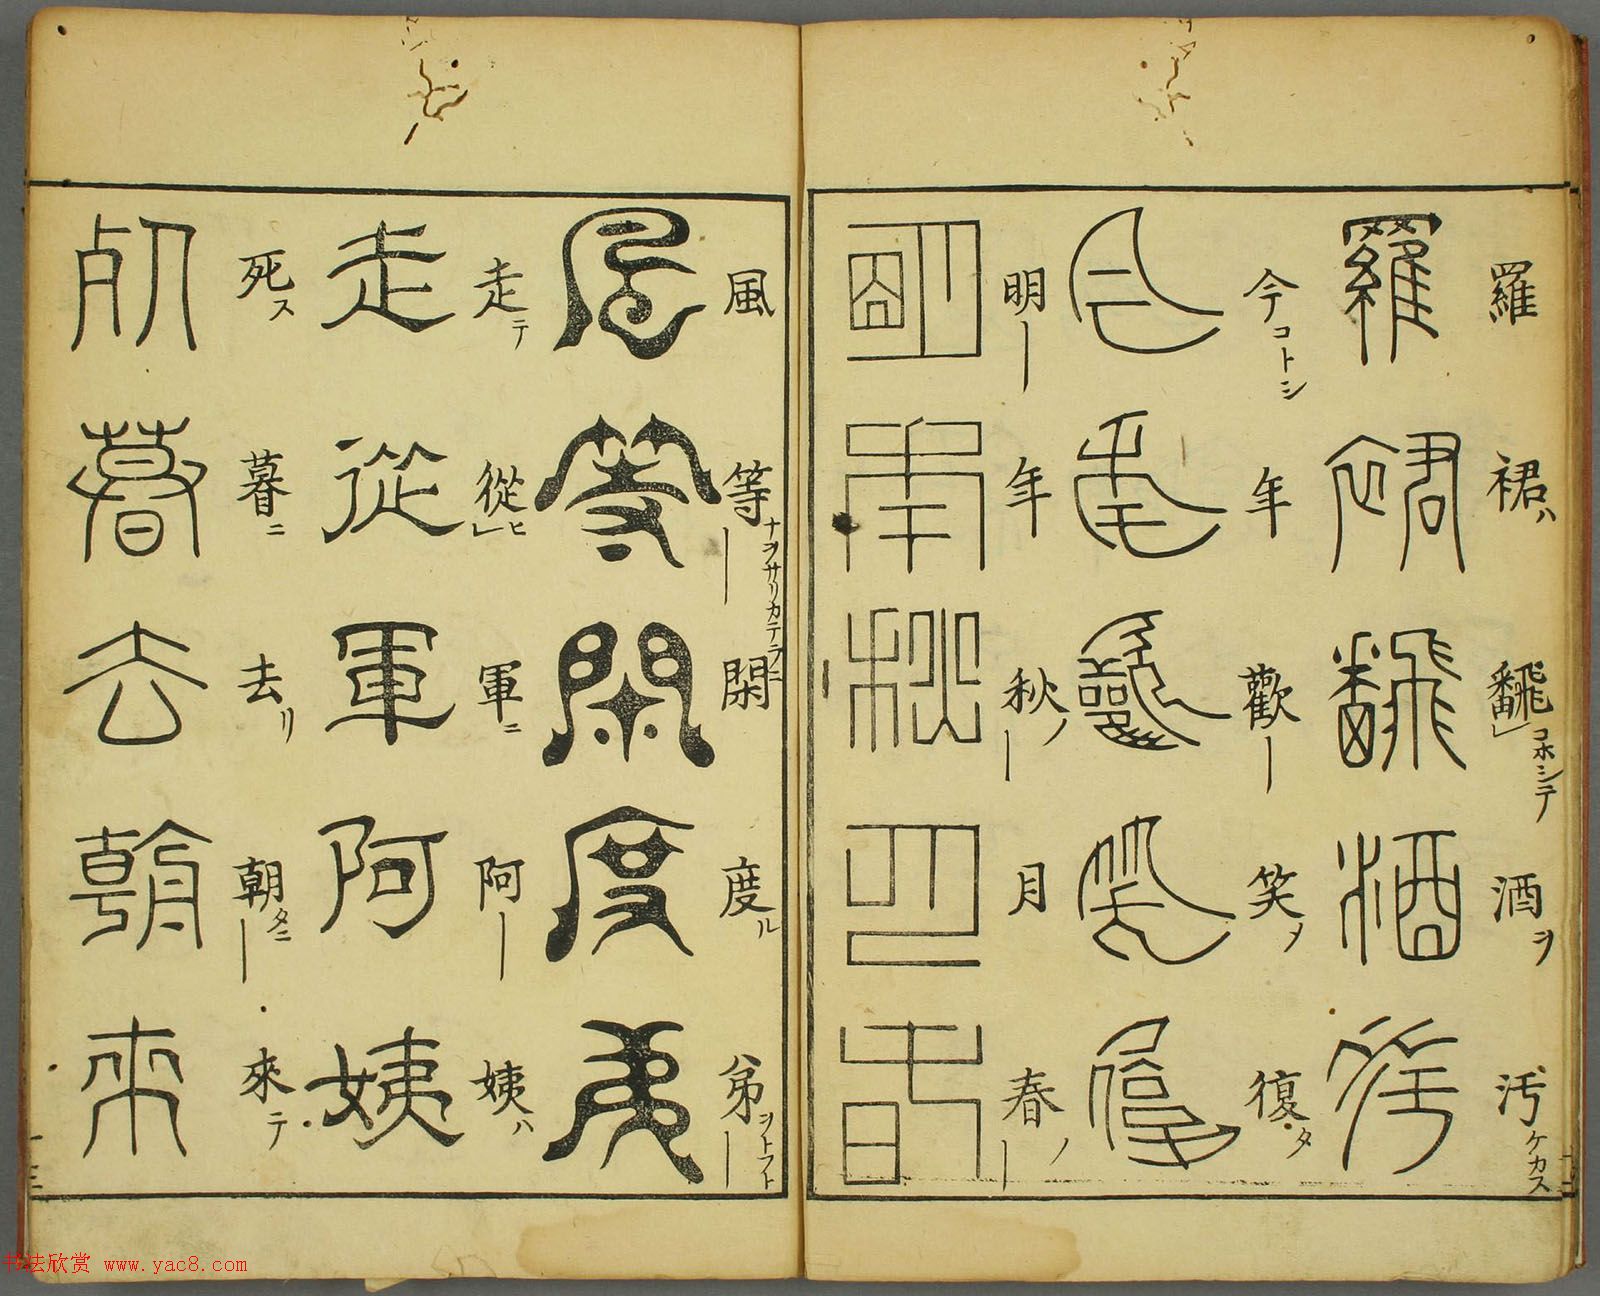 羅裙ハ飜」コホシテ酒ヲ汚ケカス
羅裙飜酒汚
今コトシ年歡—笑メ復タ
今年歡笑復
明—年秋ノ—月春ノ—
明年秋月春
風等—ナヲサリカテラニ閑度ル弟—ヲトフト
風等閑度弟
走テ從ヒ」軍ニ阿—姨ハ
走從軍阿姨
死ス暮ニ去リ朝—タニ來テ
死暮去朝來
书法欣赏 www.yac8.com